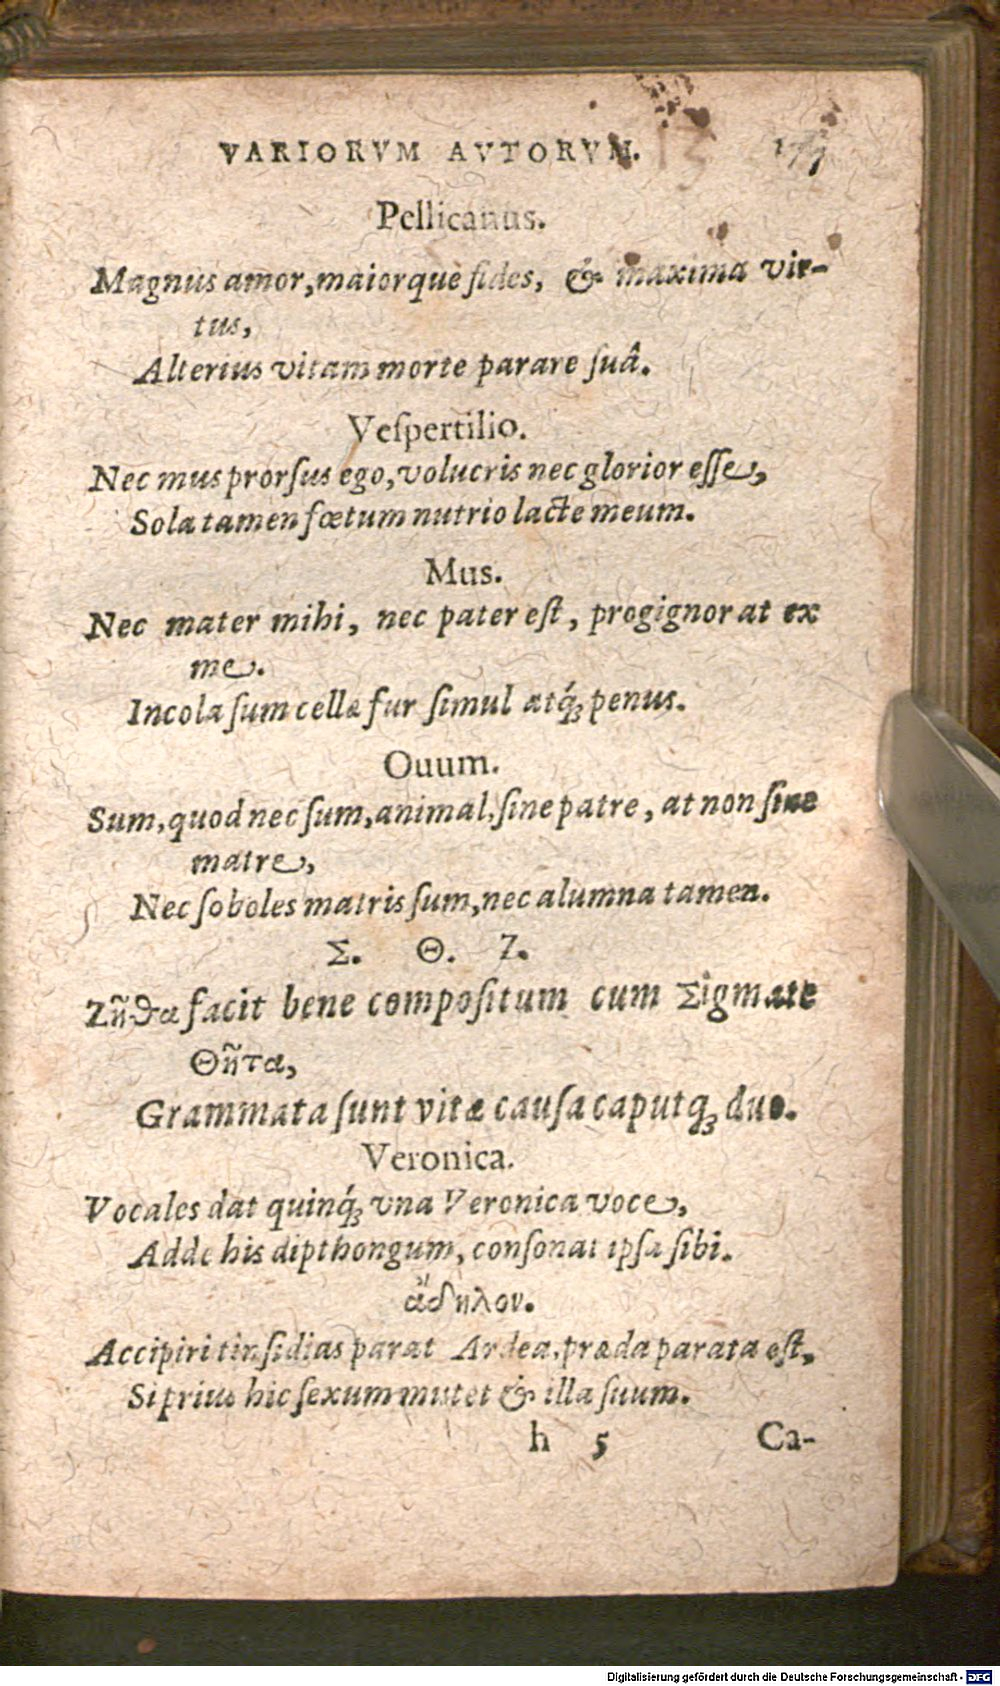 VARIORVM AVTORVM. 177
Pellicanus.
Magnus amor, maiorque fides, & maxima vir-
tus,
Alterius vitam morte parare ſuâ.
Veſpertilio.
Nec mus prorſus ego, volucris nec glorior eſſe,
Sola tamen fœtum nutrio lacte meum.
Mus.
Nec mater mihi, nec pater eſt, progignor at ex
me.
Incola ſum cellæ fur ſimul atq́ꝫ penus.
Ouum.
Sum, quod nec ſum, animal, ſine patre, at non ſine
matre,
Nec ſoboles matris ſum, nec alumna tamen.
Σ. Θ. Ζ.
Ζῆθα facit bene compoſitum cum Σigmate
Θῆτα,
Grammata ſunt vitæ cauſa caputqꝫ duo.
Veronica.
Vocales dat quinq́ꝫ vna Veronica voce,
Adde his dipthongum, conſonat ipſa ſibi.
ἄδηλον.
Accipiri tinſidias parat Ardea, præda parata eſt,
Si prius hic ſexum mutet & illa ſuum.
h 5 Ca-
Digitalisierung gefördert durch die Deutsche Forschungsgemeinschaft - DFG